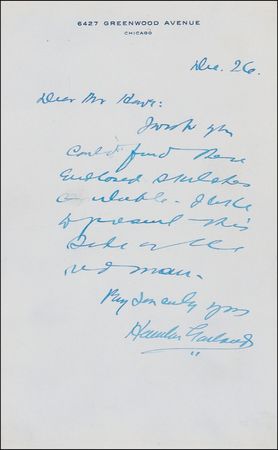 6427 GREENWOOD AVENUE
CHICAGO
Dec. 26.
Dear Mr
I wish you
could find these
enclosed sketches
available. I like
to present this
side of the
red man.
Very sincerely yours
Hamlin Garland